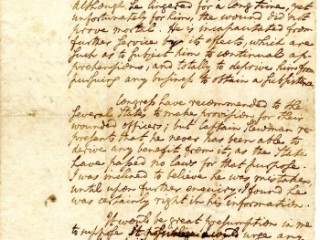 although he lingered for a long time, yet
unfortunately for him, the wound did not
prove mortal. He is incapacitated from
further Service by its effects, which are
such as to subject him to continual ap-
prehensions, and totally to deprive him from
pursuing any business to obtain a subsistence
Congress have recommended to the
several States to make provision for their
wounded officers; but Captain Newman re-
presents that he never has been able to
derive any benefit from it as the State
have passed no laws for that purpose.
I was inclined to believe he was mistaken,
until upon further enquiry I found he
was certainly right in his information.
It would be great presumption in me
to suppose would urge any